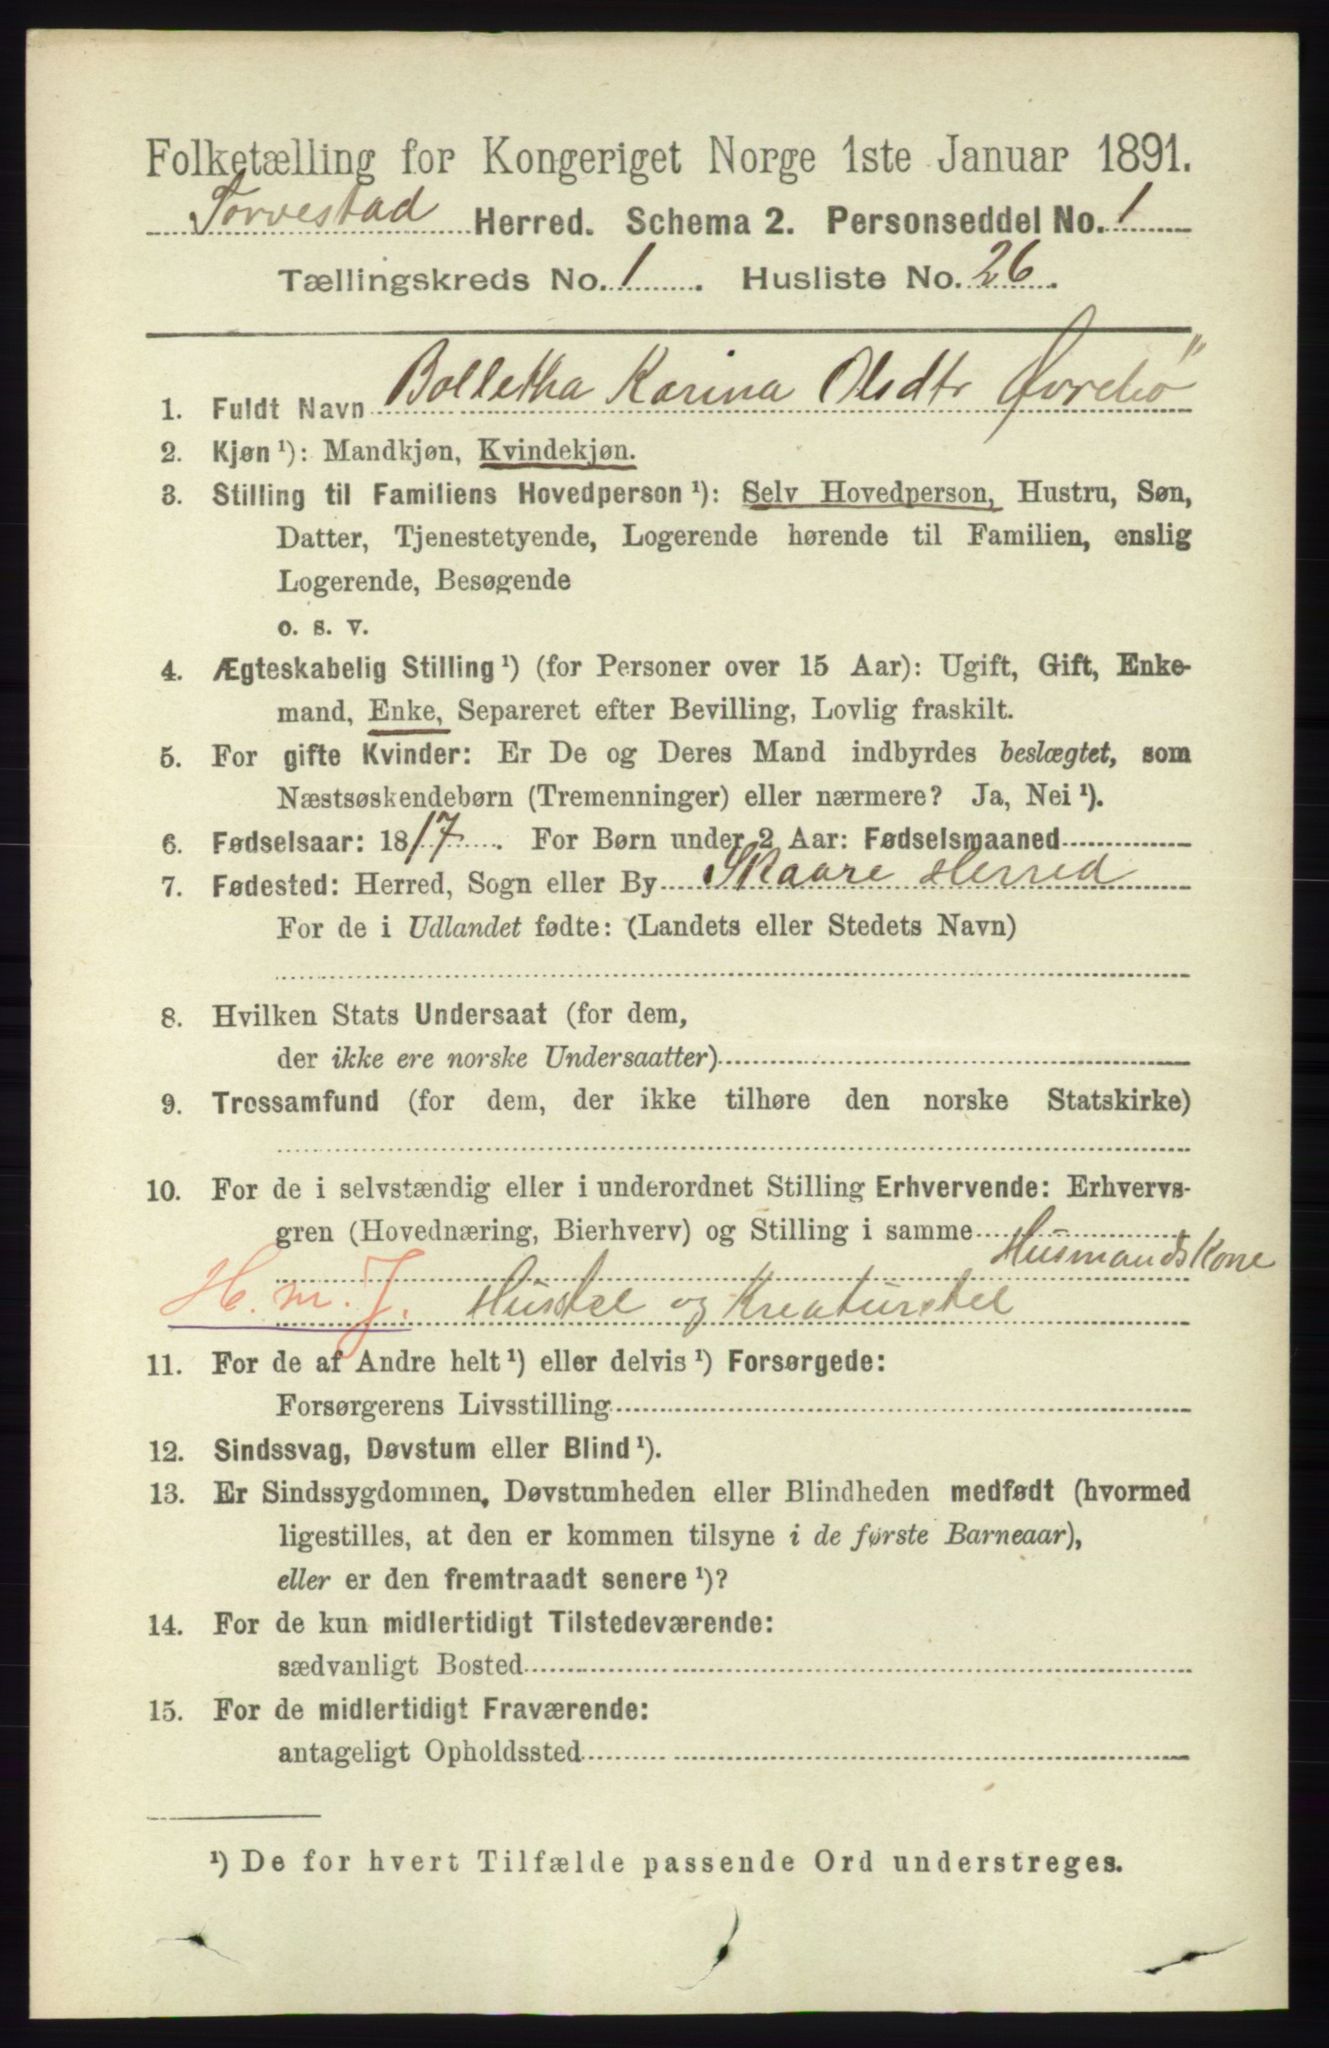 Folketælling for Kongeriget Norge 1ste Januar 1891.
Torvestad Herred. Schema 2. Personseddel No. 1
Tællingskreds No. 1. Husliste No. 26.
1. Fuldt Navn Bolletha Karina Olsdtr Øvrebø
2. Kjøn ¹): Mandkjøn, Kvindekjøn.
3. Stilling til Familiens Hovedperson ¹): Selv Hovedperson, Hustru, Søn,
Datter, Tjenestetyende, Logerende hørende til Familien, enslig
Logerende, Besøgende
o. s. v.
4. Ægteskabelig Stilling ¹) (for Personer over 15 Aar): Ugift, Gift, Enke-
mand, Enke, Separeret efter Bevilling, Lovlig fraskilt.
5. For gifte Kvinder: Er De og Deres Mand indbyrdes beslægtet, som
Næstsøskendebørn (Tremenninger) eller nærmere? Ja, Nei ¹).
6. Fødselsaar: 1817. For Børn under 2 Aar: Fødselsmaaned
7. Fødested: Herred, Sogn eller By Skaare Herred
For de i Udlandet fødte: (Landets eller Stedets Navn)
8. Hvilken Stats Undersaat (for dem,
der ikke ere norske Undersaatter)
9. Trossamfund (for dem, der ikke tilhøre den norske Statskirke)
10. For de i selvstændig eller i underordnet Stilling Erhvervende: Erhvervs-
gren (Hovednæring, Bierhverv) og Stilling i samme Husmandskone
H. m. J. Husstel og Kreaturstel
11. For de af Andre helt ¹) eller delvis ¹) Forsørgede:
Forsørgerens Livsstilling
12. Sindssvag, Døvstum eller Blind ¹).
13. Er Sindssygdommen, Døvstumheden eller Blindheden medfødt (hvormed
ligestilles, at den er kommen tilsyne i de første Barneaar),
eller er den fremtraadt senere ¹)?
14. For de kun midlertidigt Tilstedeværende:
sædvanligt Bosted
15. For de midlertidigt Fraværende:
antageligt Opholdssted
¹) De for hvert Tilfælde passende Ord understreges.